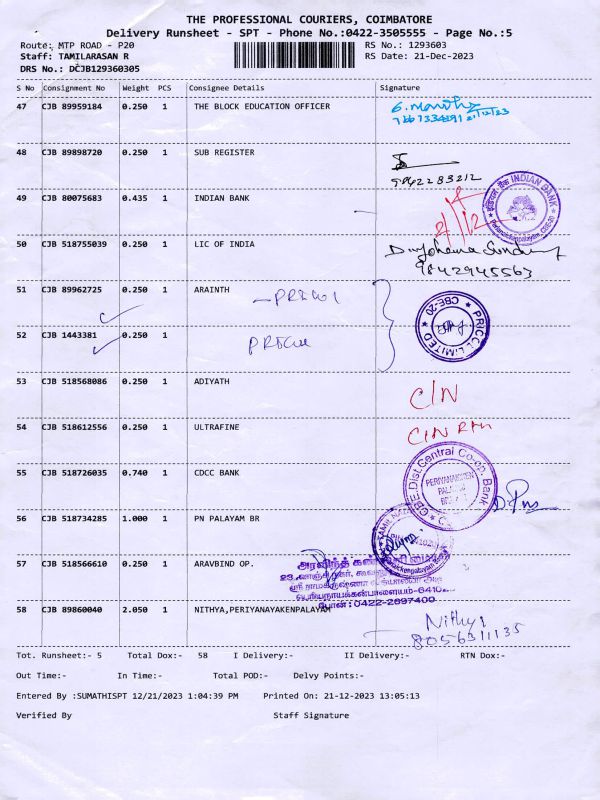 THE PROFESSIONAL COURIERS, COIMBATORE
Delivery Runsheet - SPT - Phone No.:0422-3505555 - Page No.:5
Route: MTP ROAD - P20
RS No.: 1293603
Staff: TAMILARASAN R
RS Date: 21-Dec-2023
DRS No.: DCJB129360305
S No Consignment No Weight PCS Consignee Details Signature
47 CJB 89959184 0.250 1 THE BLOCK EDUCATION OFFICER
21/12/23
48 CJB 89898720 0.250 1 SUB REGISTER
9842283212
49 CJB 80075683 0.435 1 INDIAN BANK
INDIAN BANK
50 CJB 518755039 0.250 1 LIC OF INDIA
9842945563
51 CJB 89962725 0.250 1 ARAINTH
PRICOL
CBE-20
PRICOL LIMITED
52 CJB 1443381 0.250 1
PRICOL
53 CJB 518568086 0.250 1 ADIYATH
C/N
54 CJB 518612556 0.250 1 ULTRAFINE
C/N RTN
55 CJB 518726035 0.740 1 CDCC BANK
CBE.Dist.Central Co-op. Bank
56 CJB 518734285 1.000 1 PN PALAYAM BR
57 CJB 518566610 0.250 1 ARAVBIND OP.
அரவிந்த் கண்
போன்:0422-2697400
58 CJB 89860040 2.050 1 NITHYA,PERIYANAYAKENPALAYAM
Nithya
8056311135
Tot. Runsheet:- 5 Total Dox:- 58 I Delivery:- II Delivery:- RTN Dox:-
Out Time:- In Time:- Total POD:- Delvy Points:-
Entered By :SUMATHISPT 12/21/2023 1:04:39 PM Printed On: 21-12-2023 13:05:13
Verified By Staff Signature